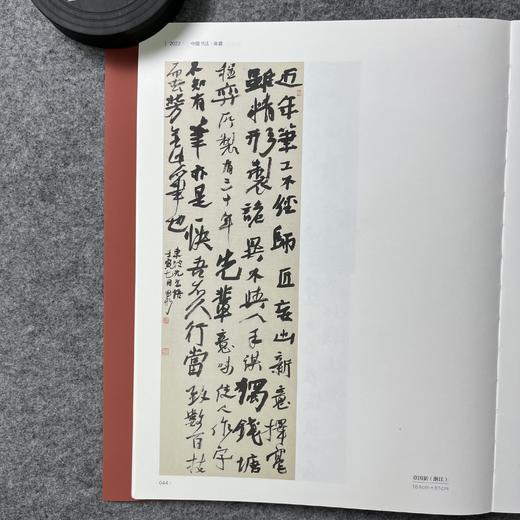 2022 中国书法·年鉴
近年筆工不經師匠妄出新意擇毫
雖精形製詭異不與人手謀獨錢塘
程弈所製有三十年先輩意味使人作字
不知有筆亦是快吾不久行當致數百枝
而去無此筆也
東坡先生語
壬寅七月
章国新（浙江）
164cm×61cm
044